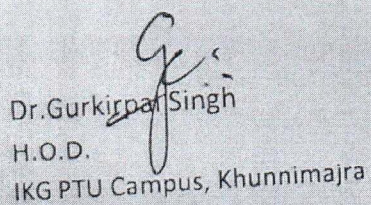 Dr.Gurkirpal Singh
H.O.D.
IKG PTU Campus, Khunnimajra